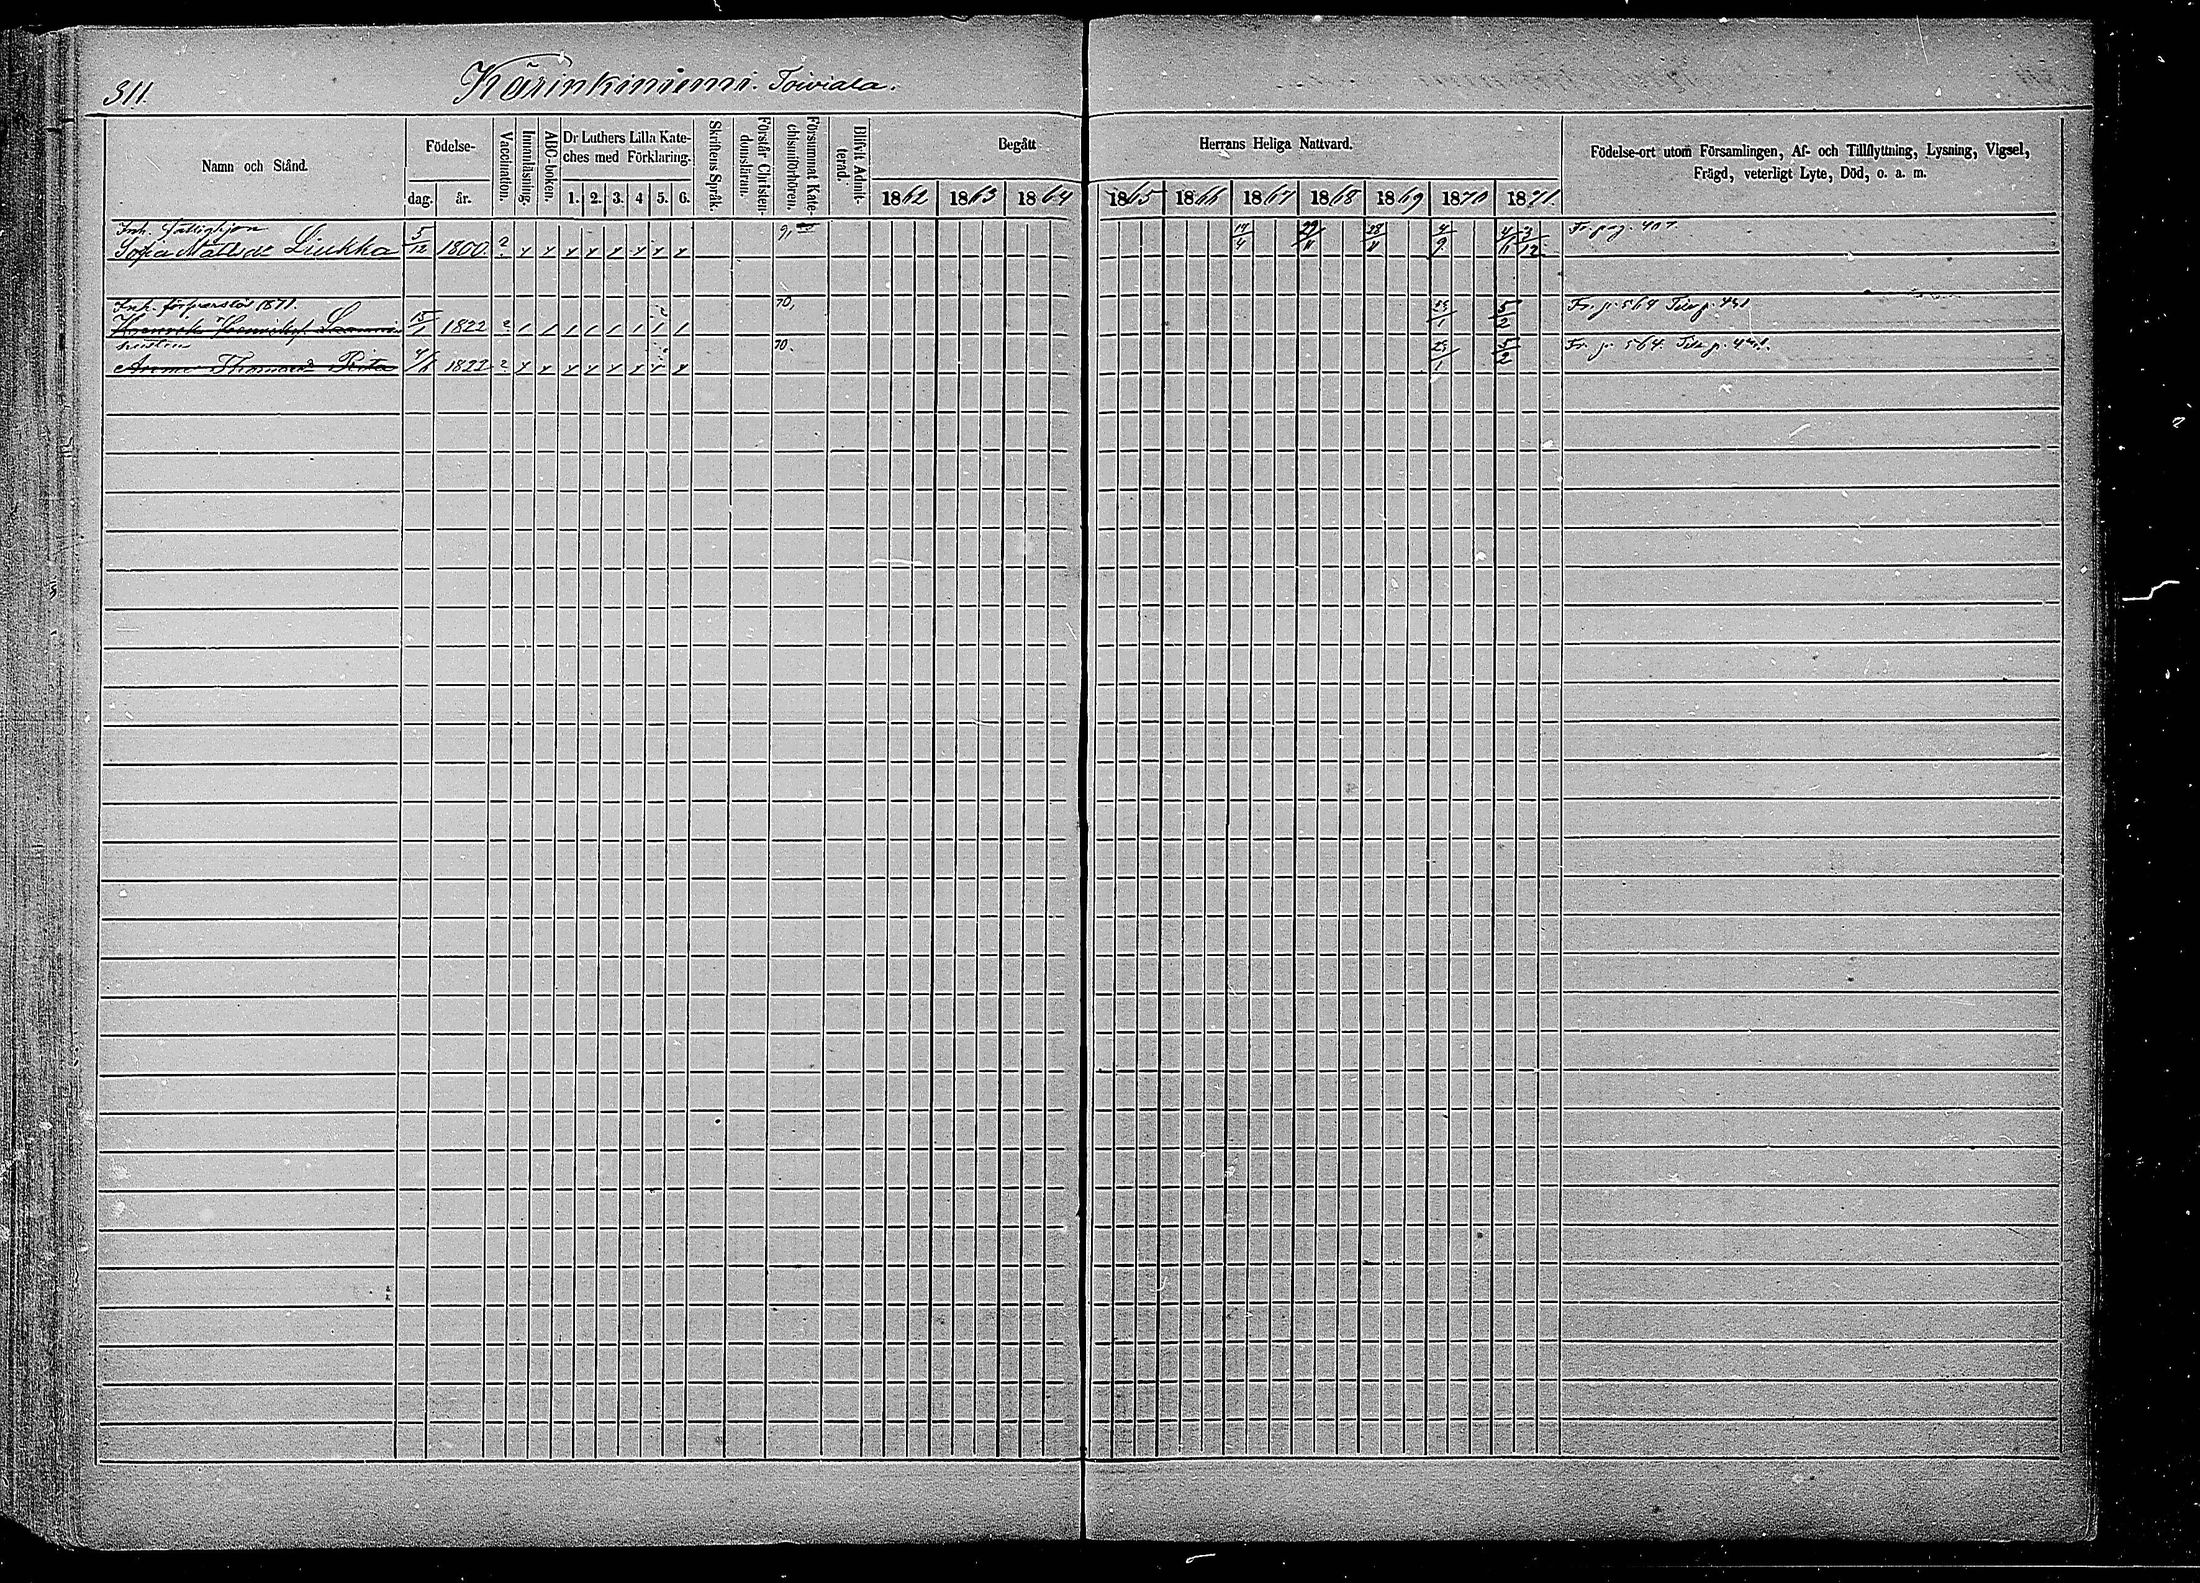 311.
Kärinkiniemi. Toiviala.
Namn och Stånd.
Födelse-
dag. år.
Vaccination.
Innanläsning.
ABC-boken.
Dr Luthers Lilla Kate-
ches med Förklaring.
1. 2. 3. 4 5. 6.
Skriftens Språk.
Förstår Christen-
domsläran.
Försummat Kate-
chismiförhören.
Blifvit Admit-
terad.
Begått
1862 1863 1864
Herrans Heliga Nattvard.
1865 1866 1867 1868 1869 1870 1871.
Födelse-ort utom Församlingen, Af- och Tillflyttning, Lysning, Vigsel,
Frägd, veterligt Lyte, Död, o. a. m.
Inh. Fattighjon
Sofia Matsd. Liukka 5/12 1800. ? 19/4 29/11 28/11 4/9 4/11 3/12. Fr. pag. 407
Inh. försvarslös 1871.
15/1 1822 ? 70, 23/1 5/2 Fr. p. 564 Till p. 431
hustru
Anna Thomasd Rita 4/6 1822 ? 70. 23/1 5/2 Fr. p. 564. Till p. 431.